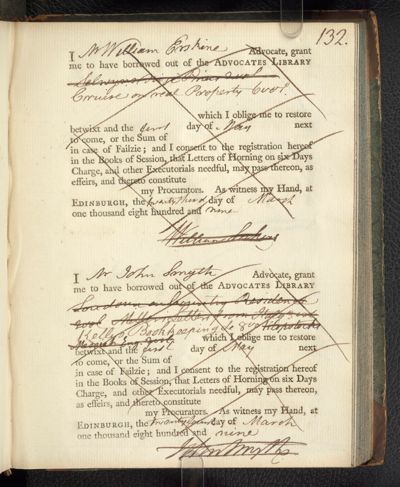 132.
I Mr William Erskine Advocate, grant
me to have borrowed out of the ADVOCATES LIBRARY
Cruise on real Property 6 vol.
which I oblige me to restore
betwixt and the first day of May next
to come, or the Sum of
in case of Failzie; and I consent to the registration hereof
in the Books of Session, that Letters of Horning on six Days
Charge, and other Executorials needful, may pass thereon, as
effeirs, and thereto constitute
my Procurators. As witness my Hand, at
EDINBURGH, the twenty third day of March
one thousand eight hundred and nine
William Erskine
I Mr John Smyth Advocate, grant
me to have borrowed out of the ADVOCATES LIBRARY
Kelly's Bookkeeping 8vo
which I oblige me to restore
betwixt and the first day of May next
to come, or the Sum of
in case of Failzie; and I consent to the registration hereof
in the Books of Session, that Letters of Horning on six Days
Charge, and other Executorials needful, may pass thereon,
as effeirs, and thereto constitute
my Procurators. As witness my Hand, at
EDINBURGH, the day of March
one thousand eight hundred and nine
John Smyth